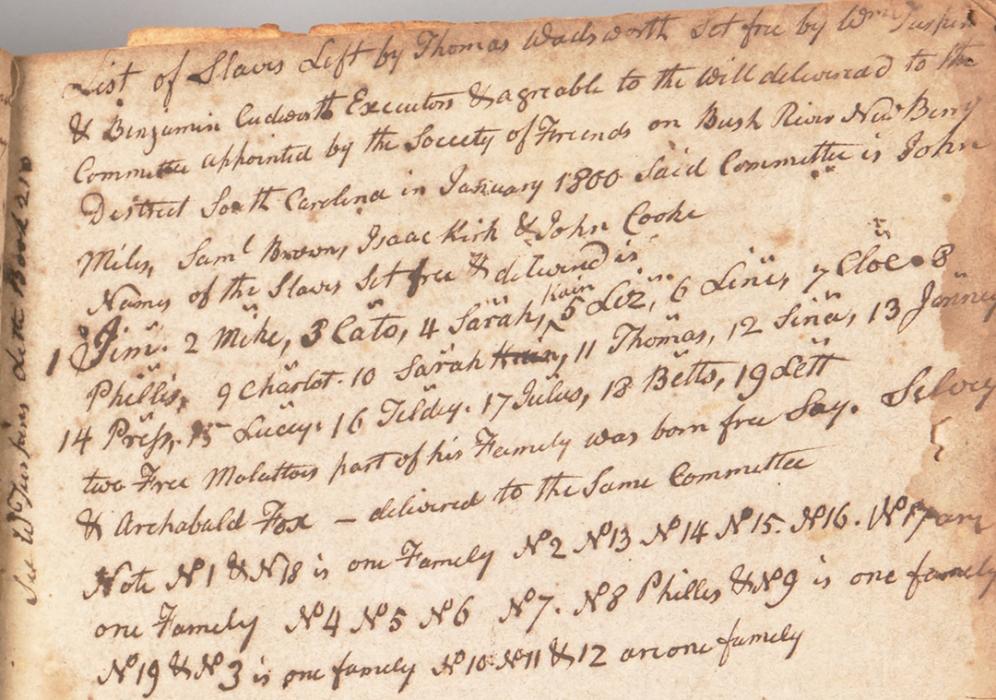 List of Slaves Left by Thomas Wadsworth Set free by Wm Turpin
& Benjamin Cudworth Executors & agreable to the Will delivered to the
Committee appointed by the Society of Friends on Bush River New Berry
District South Carolina in January 1800 Said Committee is John
Miles, Saml Brown, Isaac Kirk & John Cooke
Names of the Slaves Set free & delivered is
1 Jim. 2 Mike, 3 Cato, 4 Sarah, Kain 5 Liz, 6 Lines, 7 Cloe. 8
Phillis, 9 Charlot. 10 Sarah 11 Thomas, 12 Sina, 13 Janney
14 Press, 15 Lucey. 16 Tildey. 17 Julus, 18 Betts, 19 Lett
two Free Malattos part of his Family was born free Say. Selvey
& Archabald Fox — delivered to the Same Committee
Note No1 & No18 is one Family No2 No13 No14 No15. No16. No17 are
one Family No4 No5 No6 No7. No8 Phillis & No9 is one family
No19 & No3 is one family No10 No11 & 12 are one family
See Wm Turpins